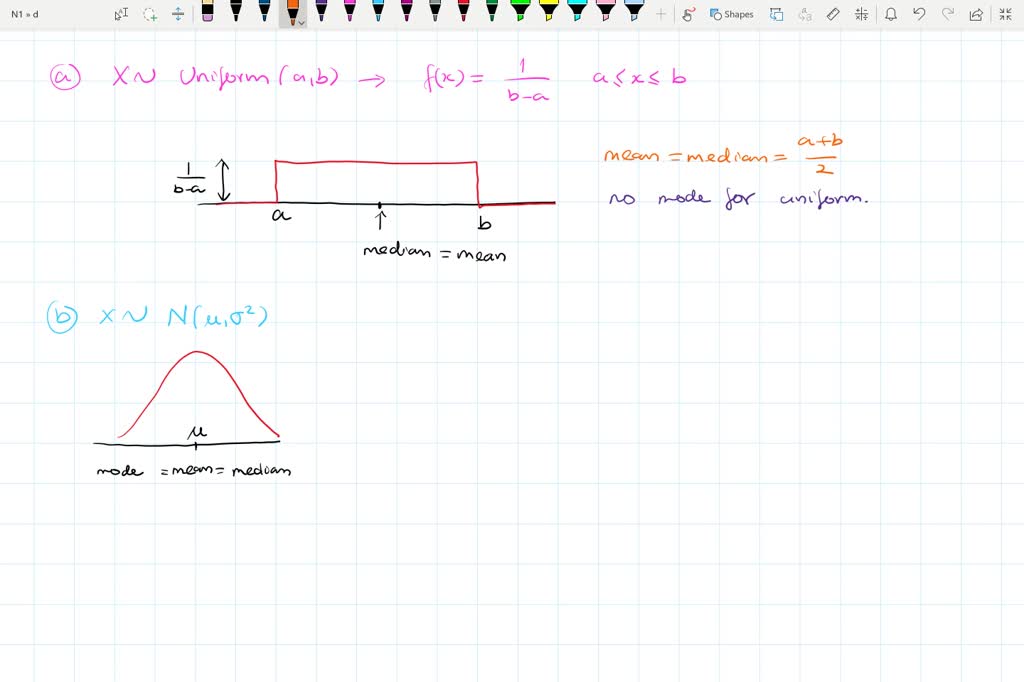 N1 » d
Shapes
(a) X ~ Uniform (a,b) → f(x) = 1/(b-a) a ≤ x ≤ b
1/(b-a)
a
b
median = mean
mean = median = (a+b)/2
no mode for uniform.
(b) X ~ N(μ,σ²)
μ
mode = mean = median